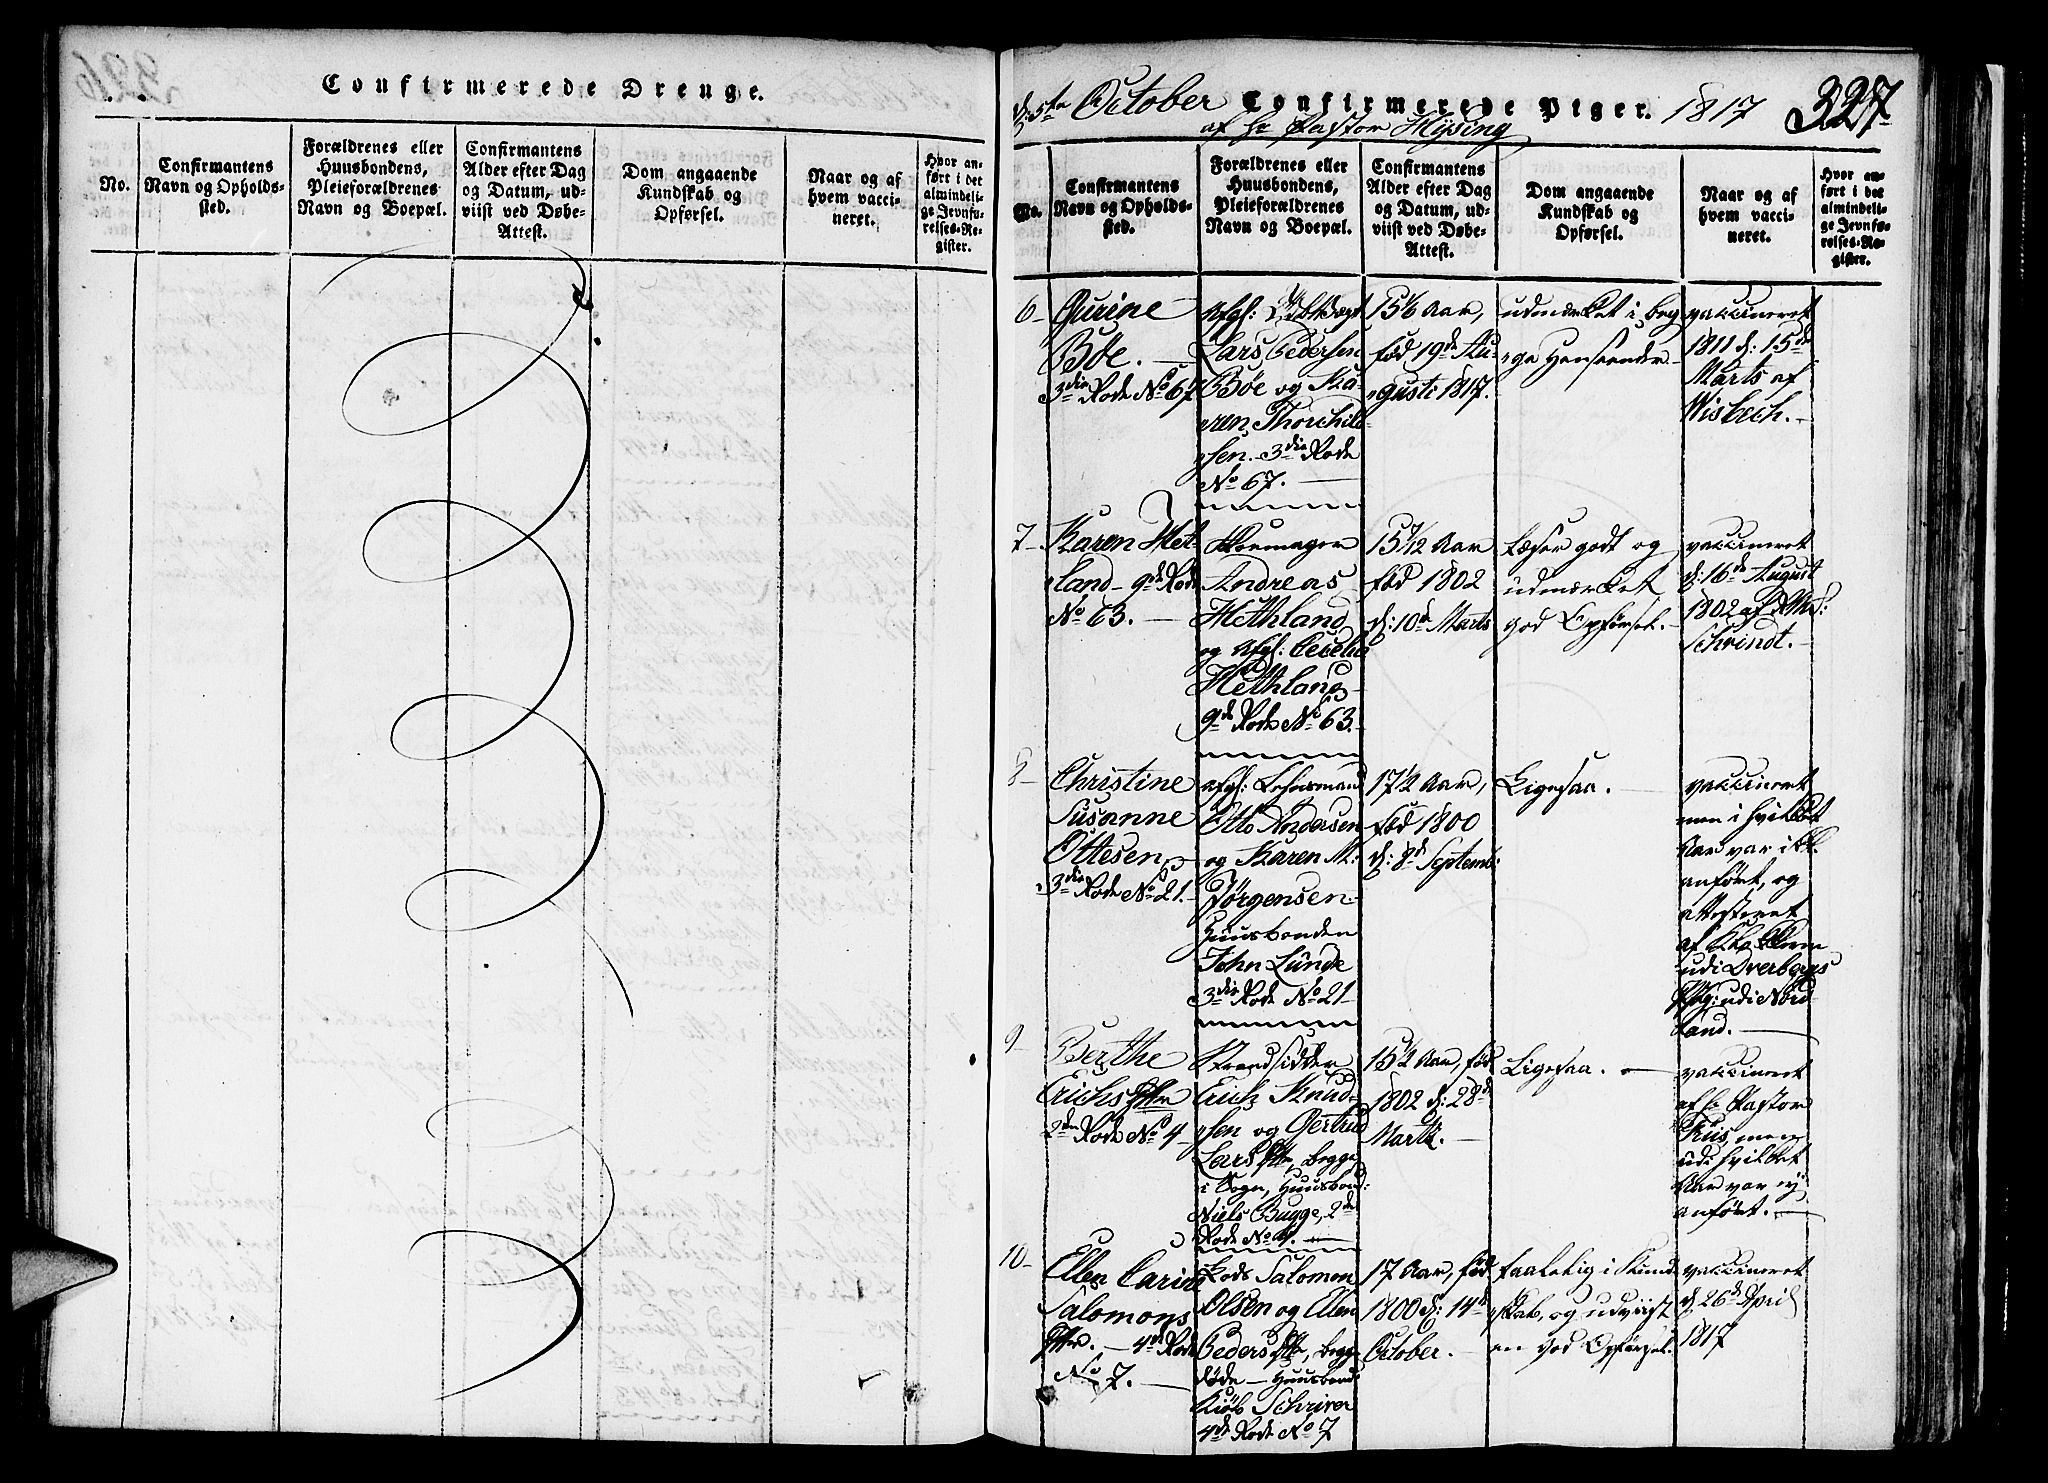 Confirmerede Drenge.
No.
Confirmantens
Navn og Opholds-
sted.
Forældrenes eller
Huusbondens,
Pleieforældrenes
Navn og Boepæl.
Confirmantens
Alder efter Dag
og Datum, ud-
viist ved Døbe-
Attest.
Dom angaaende
Kundskab og
Opførsel.
Naar og af
hvem vacci-
neret.
Hvor an-
ført i det
almindeli-
ge Jevnfø-
relses-Re-
gister.
d: 5te October Confirmerede Piger. 1817 327
af Hr Pastor Hysing
No.
Confirmantens
Navn og Opholds-
sted.
Forældrenes eller
Huusbondens,
Pleieforældrenes
Navn og Boepæl.
Confirmantens
Alder efter Dag
og Datum, ud-
viist ved Døbe-
Attest.
Dom angaaende
Kundskab og
Opførsel.
Naar og af
hvem vacci-
neret.
Hvor an-
ført i det
almindeli-
ge Jevnfø-
relses-Re-
gister.
6-
Gurine
Bøe.
3die Rode No 67
afgl:
Lars Pedersen
Bøe og Ka-
ren Thorchild-
sen. 3die Rode
No 67.
15 1/6 Aar,
fød 19de Au-
gusti 1817.
udmærket i beg
ge Henseender
vaccineret
1811 d: 15de
Marts af
Wisbech.
7-
Karen Het
land 9de Rode
No 63.
Skoemager
Andreas
Hethland
og Afgl: Cecelia
Hethland
9de Rode No 63.
15 7/12 Aar
fød 1802
d: 10de Marts
Læser godt og
udmærket
god Opførsel.
vaccineret
d: 16de August
1802 af
Schrindt.
8-
Christine
Susanne
Ottesen,
3die Rode No 21.
afgl: Lehnsmand
Otto Andersen
og Karen M:
Jørgensen
Huusbonden
John Lunde
3die Rode No 21
17 1/2 Aar,
fød 1800
d: 8de Septemb:
Ligesaa.
vaccineret
men i hvilket
Aar var ikke
anført, og
attesteret
af Klokkeren
udi Dverbergs
Præg: udi Nord
land.
9-
Berthe
Erichs Dtter
2den Rode No 4
Strandsidder
Erich Knud-
sen og Gertrud
Lars Dtr, begge
i Sogn, Huusbond:
Niels Bugge, 2de
Rode No 4.
15 1/2 Aar, fød
1802 d: 28de
Marti.
Ligesaa.
vaccineret
af Hr Pastor
Friis, men
udi hvilket
Aar var ej
anført.
10-
Ellen Carine
Salomons
Dtter. 4de Rode
No 7.
Lods Salomon
Olsen og Ellen
Peders Dtr, begge
døde Huusbond
Kiøb Schriver
4de Rode No 7
17 Aar, fød
1800 d: 14de
October.
taalelig i Kund
skab, og udviist
en god Opførsel.
vaccineret
d 26de April
1817